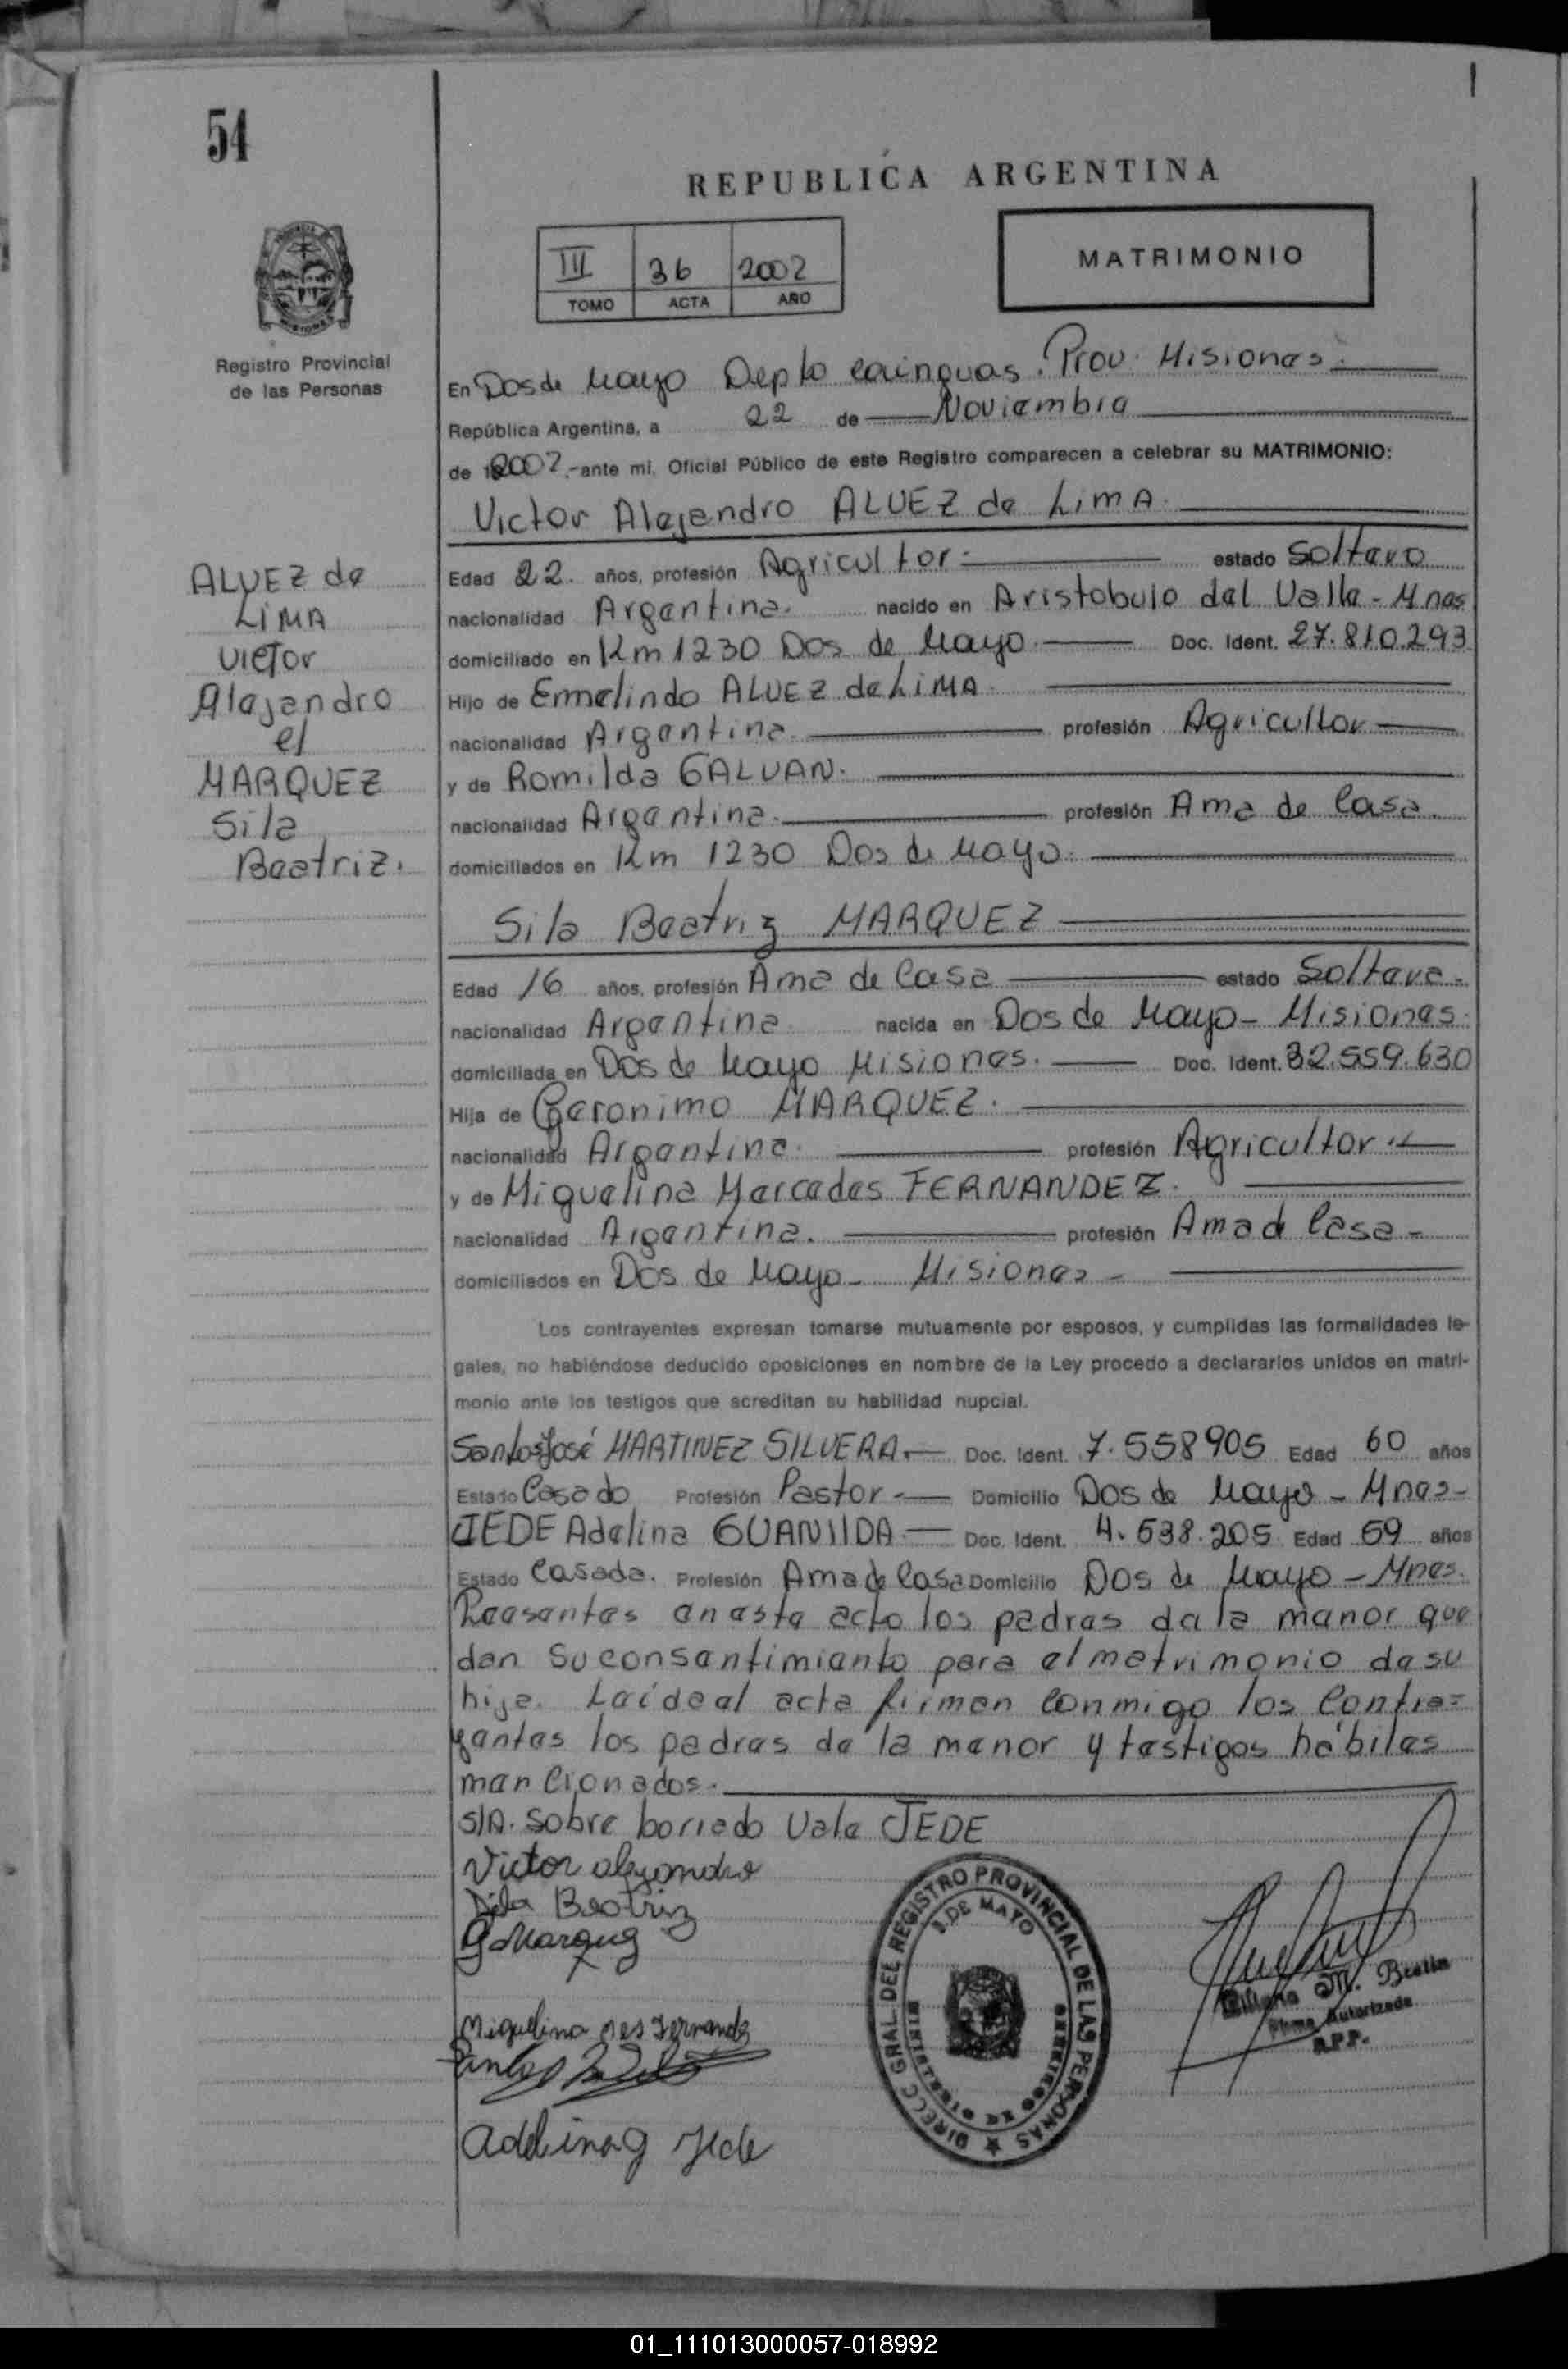 54
REPUBLICA ARGENTINA
III 36 2002
TOMO ACTA AÑO
MATRIMONIO
Registro Provincial
de las Personas
En Dos de Mayo Depto Cainguas. Prov. Misiones.
República Argentina, a 22 de Noviembre
de 2002.- ante mi, Oficial Público de este Registro comparecen a celebrar su MATRIMONIO:
Victor Alejandro ALVEZ de LIMA.
ALVEZ de
LIMA
VICTOR
Alejandro
el
MARQUEZ
Sila
Beatriz.
Edad 22. años, profesión Agricultor.- estado Soltero
nacionalidad Argentina. nacido en Aristobulo del Valle - Mnes
domiciliado en Km 1230 Dos de Mayo. Doc. Ident. 27.810.293
Hijo de Ermelindo ALVEZ de LIMA.
nacionalidad Argentina. profesión Agricultor
y de Romilda GALVAN.
nacionalidad Argentina. profesión Ama de Casa.
domiciliados en Km 1230 Dos de Mayo.
Sila Beatriz MARQUEZ
Edad 16 años, profesión Ama de Casa estado Soltera.
nacionalidad Argentina nacida en Dos de Mayo - Misiones.
domiciliada en Dos de Mayo Misiones. Doc. Ident. 32.559.630
Hija de Geronimo MARQUEZ.
nacionalidad Argentina. profesión Agricultor.-
y de Miguelina Mercedes FERNANDEZ.
nacionalidad Argentina. profesión Ama d Casa -
domiciliados en Dos de Mayo - Misiones -
Los contrayentes expresan tomarse mutuamente por esposos, y cumplidas las formalidades le-
gales, no habiéndose deducido oposiciones en nombre de la Ley procedo a declararlos unidos en matri-
monio ante los testigos que acreditan su habilidad nupcial.
Santos José MARTINEZ SILVERA.- Doc. Ident. 7.558905 Edad 60 años
Estado Casado Profesión Pastor.- Domicilio Dos de Mayo - Mnes -
JEDE Adelina GUANIIDA.- Doc. Ident. 4.538.205 Edad 59 años
Estado Casada. Profesión Ama de Casa Domicilio Dos de Mayo - Mnes.
Presentes en este acto los padres de la menor que
dan su consentimiento para el matrimonio de su
hija. Leída el acta firman conmigo los Contra=
yentes los padres de la menor y testigos hábiles
mencionados.
S/A. Sobre borrado Vale JEDE
Victor alejandro
Sila Beatriz
G Marquez
Miguelina Mes Fernandez
Adelina G Jede
DIRECC GRAL. DEL REGISTRO PROVINCIAL DE LAS PERSONAS
2 DE MAYO
M. Beatin
Firma Autorizada
R.P.P.
01_111013000057-018992